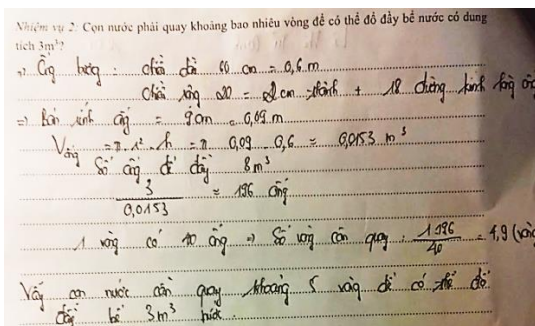 Nhiệm vụ 2: Cọn nước phải quay khoảng bao nhiêu vòng để có thể đổ đầy bể nước có dung
tích 3m³?
=> Ống : chiều dài 60 cm = 0,6 m
chiều rộng 20 - 2 cm thành = 18 đường kính ống
=> Bán kính ống = 9 cm = 0,09 m
Vống = π.r².h = π 0,09 . 0,6 = 0,0153 m³
Số ống để đầy 3m³
3
0,0153 = 196 ống
1 vòng có 40 ống => Số vòng cần quay : 196
40 = 4,9 (vòng
Vậy con nước cần quay khoảng 5 vòng để có thể đổ
đầy bể 3m³